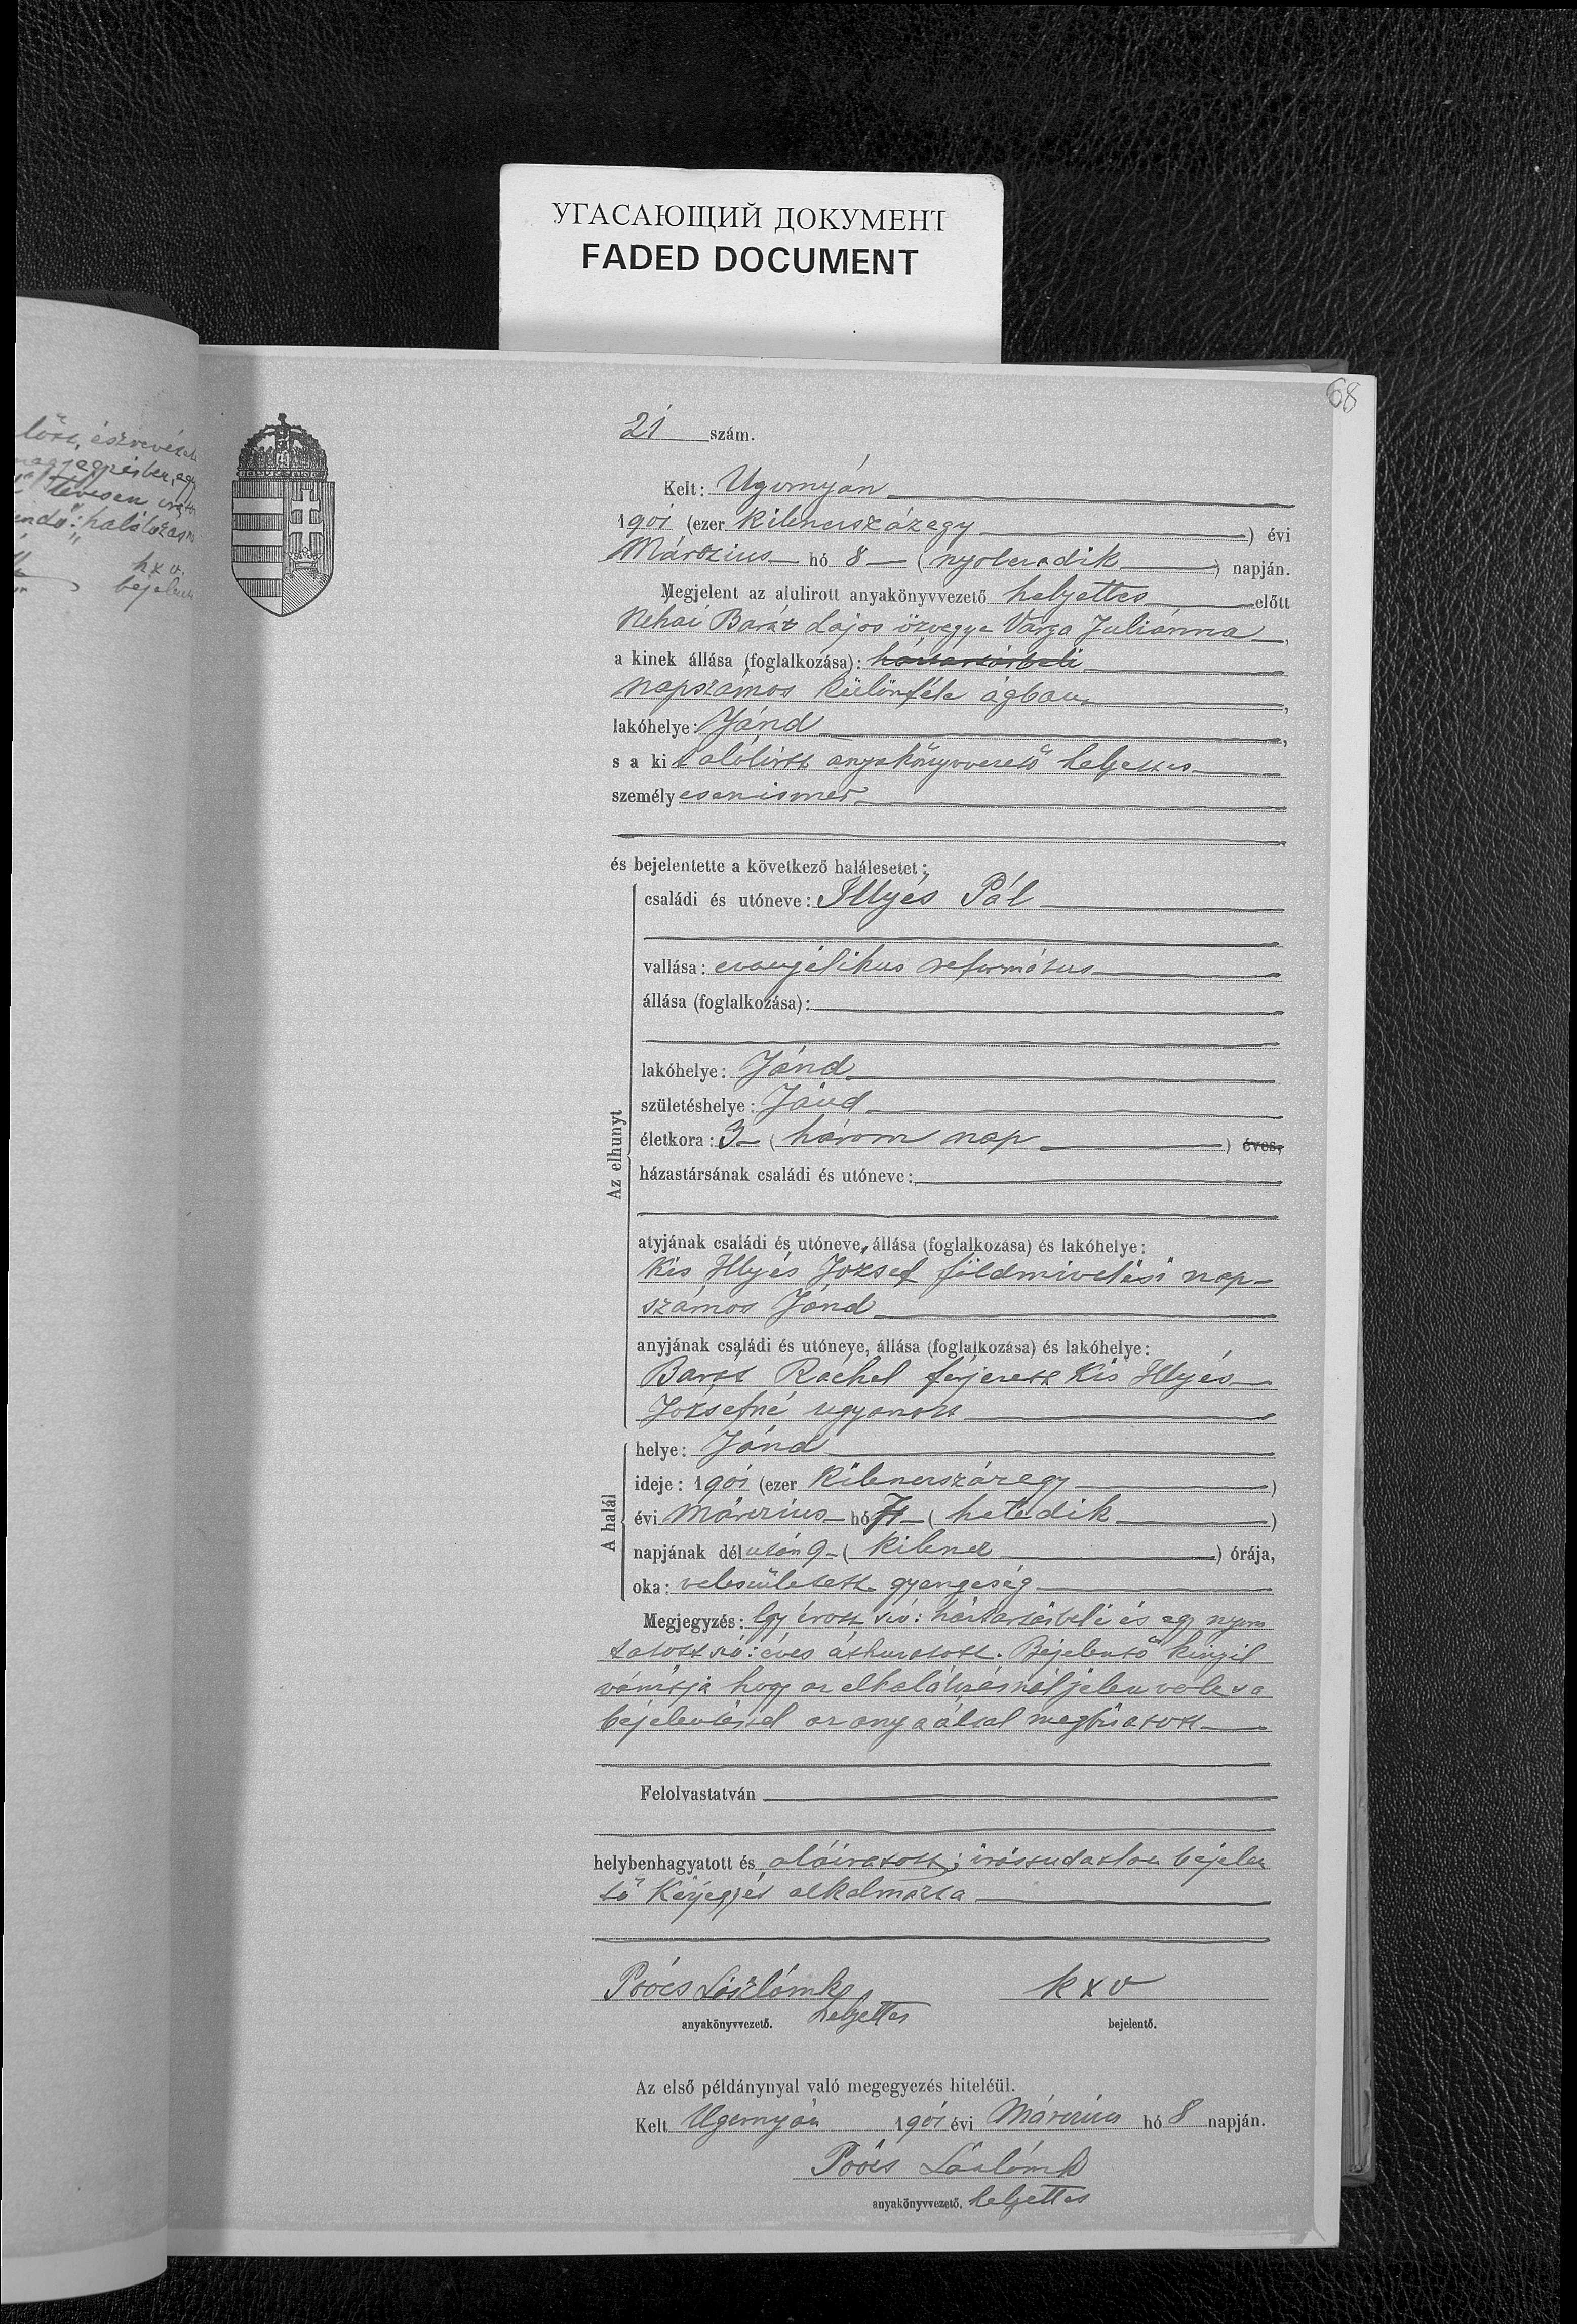 УГАСАЮЩИЙ ДОКУМЕНТ
FADED DOCUMENT
68
21 szám.
Kelt: Ugornyán
1901 (ezer kilenczszázegy) évi
Márczius hó 8 (nyolczadik) napján.
Megjelent az alulirott anyakönyvvezető helyettes előtt
Néhai Barát Lajos özvegye Varga Juliánna,
a kinek állása (foglalkozása): háztartásbeli
napszámos különféle ágban,
lakóhelye: Jánd,
s a kit alólirtt anyakönyvvezető helyettes
személyesen ismer
és bejelentette a következő halálesetet:
Az elhunyt
családi és utóneve: Illyés Pál
vallása: evangélikus református
állása (foglalkozása):
lakóhelye: Jánd
születéshelye: Jánd
életkora: 3 (három nap) éves,
házastársának családi és utóneve:
atyjának családi és utóneve, állása (foglalkozása) és lakóhelye:
Kis Illyés József földmivelési nap-
számos Jánd
anyjának családi és utóneve, állása (foglalkozása) és lakóhelye:
Barát Ráchel férjezett Kis Illyés
Józsefné ugyanott
A halál
helye: Jánd
ideje: 1901 (ezer kilenczszázegy)
évi Márczius hó 7 (hetedik)
napjának délután 9 (kilencz) órája,
oka: veleszületett gyengeség
Megjegyzés: Egy írott szó: háztartásbeli és egy nyom
tatott szó: éves áthuzatott. Bejelentő kinyil
vánítja hogy az elhalálozásnál jelen volt s a
bejelentéssel az anya által megbizatott
Felolvastatván
helybenhagyatott és aláiratott; irástudatlan bejelen
tő kézjegyét alkalmazta
Poócs László mk helyettes
anyakönyvvezető.
k x v
bejelentő.
Az első példánynyal való megegyezés hiteléül.
Kelt Ugornyán 1901 évi Márczius hó 8 napján.
Poócs László mk
anyakönyvvezető. helyettes